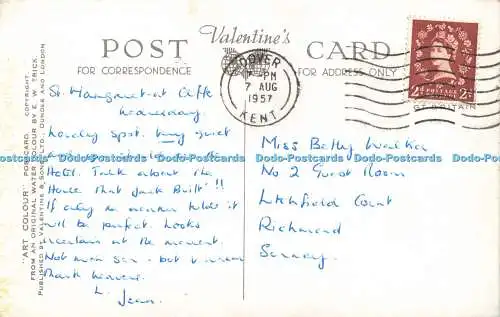 Valentine's
POST CARD
FOR CORRESPONDENCE
FOR ADDRESS ONLY
DOVER
PM
7 AUG
1957
KENT
POSTAGE
2½
"ART COLOUR" POSTCARD. COPYRIGHT.
FROM AN ORIGINAL WATER COLOUR BY E. W. TRICK.
PUBLISHED BY VALENTINE & SONS, LTD., DUNDEE AND LONDON
St. Margaret-at-Cliffe
Wednesday
Lovely spot. Very quiet
Hotel. Talk about the
House that Jack Built"!!
If only the weather holds it
will be perfect. Looks
uncertain at the moment.
Not much sun - but warm
thank heavens.
L.
Jean.
Miss Betty Walker
No 2 Guest Room
Litchfield Court
Richmond
Surrey
Dodo-Postcards Dodo-Postcards Dodo-Postcards Dodo-Postcards Dodo-Postcards Dodo-Postcards